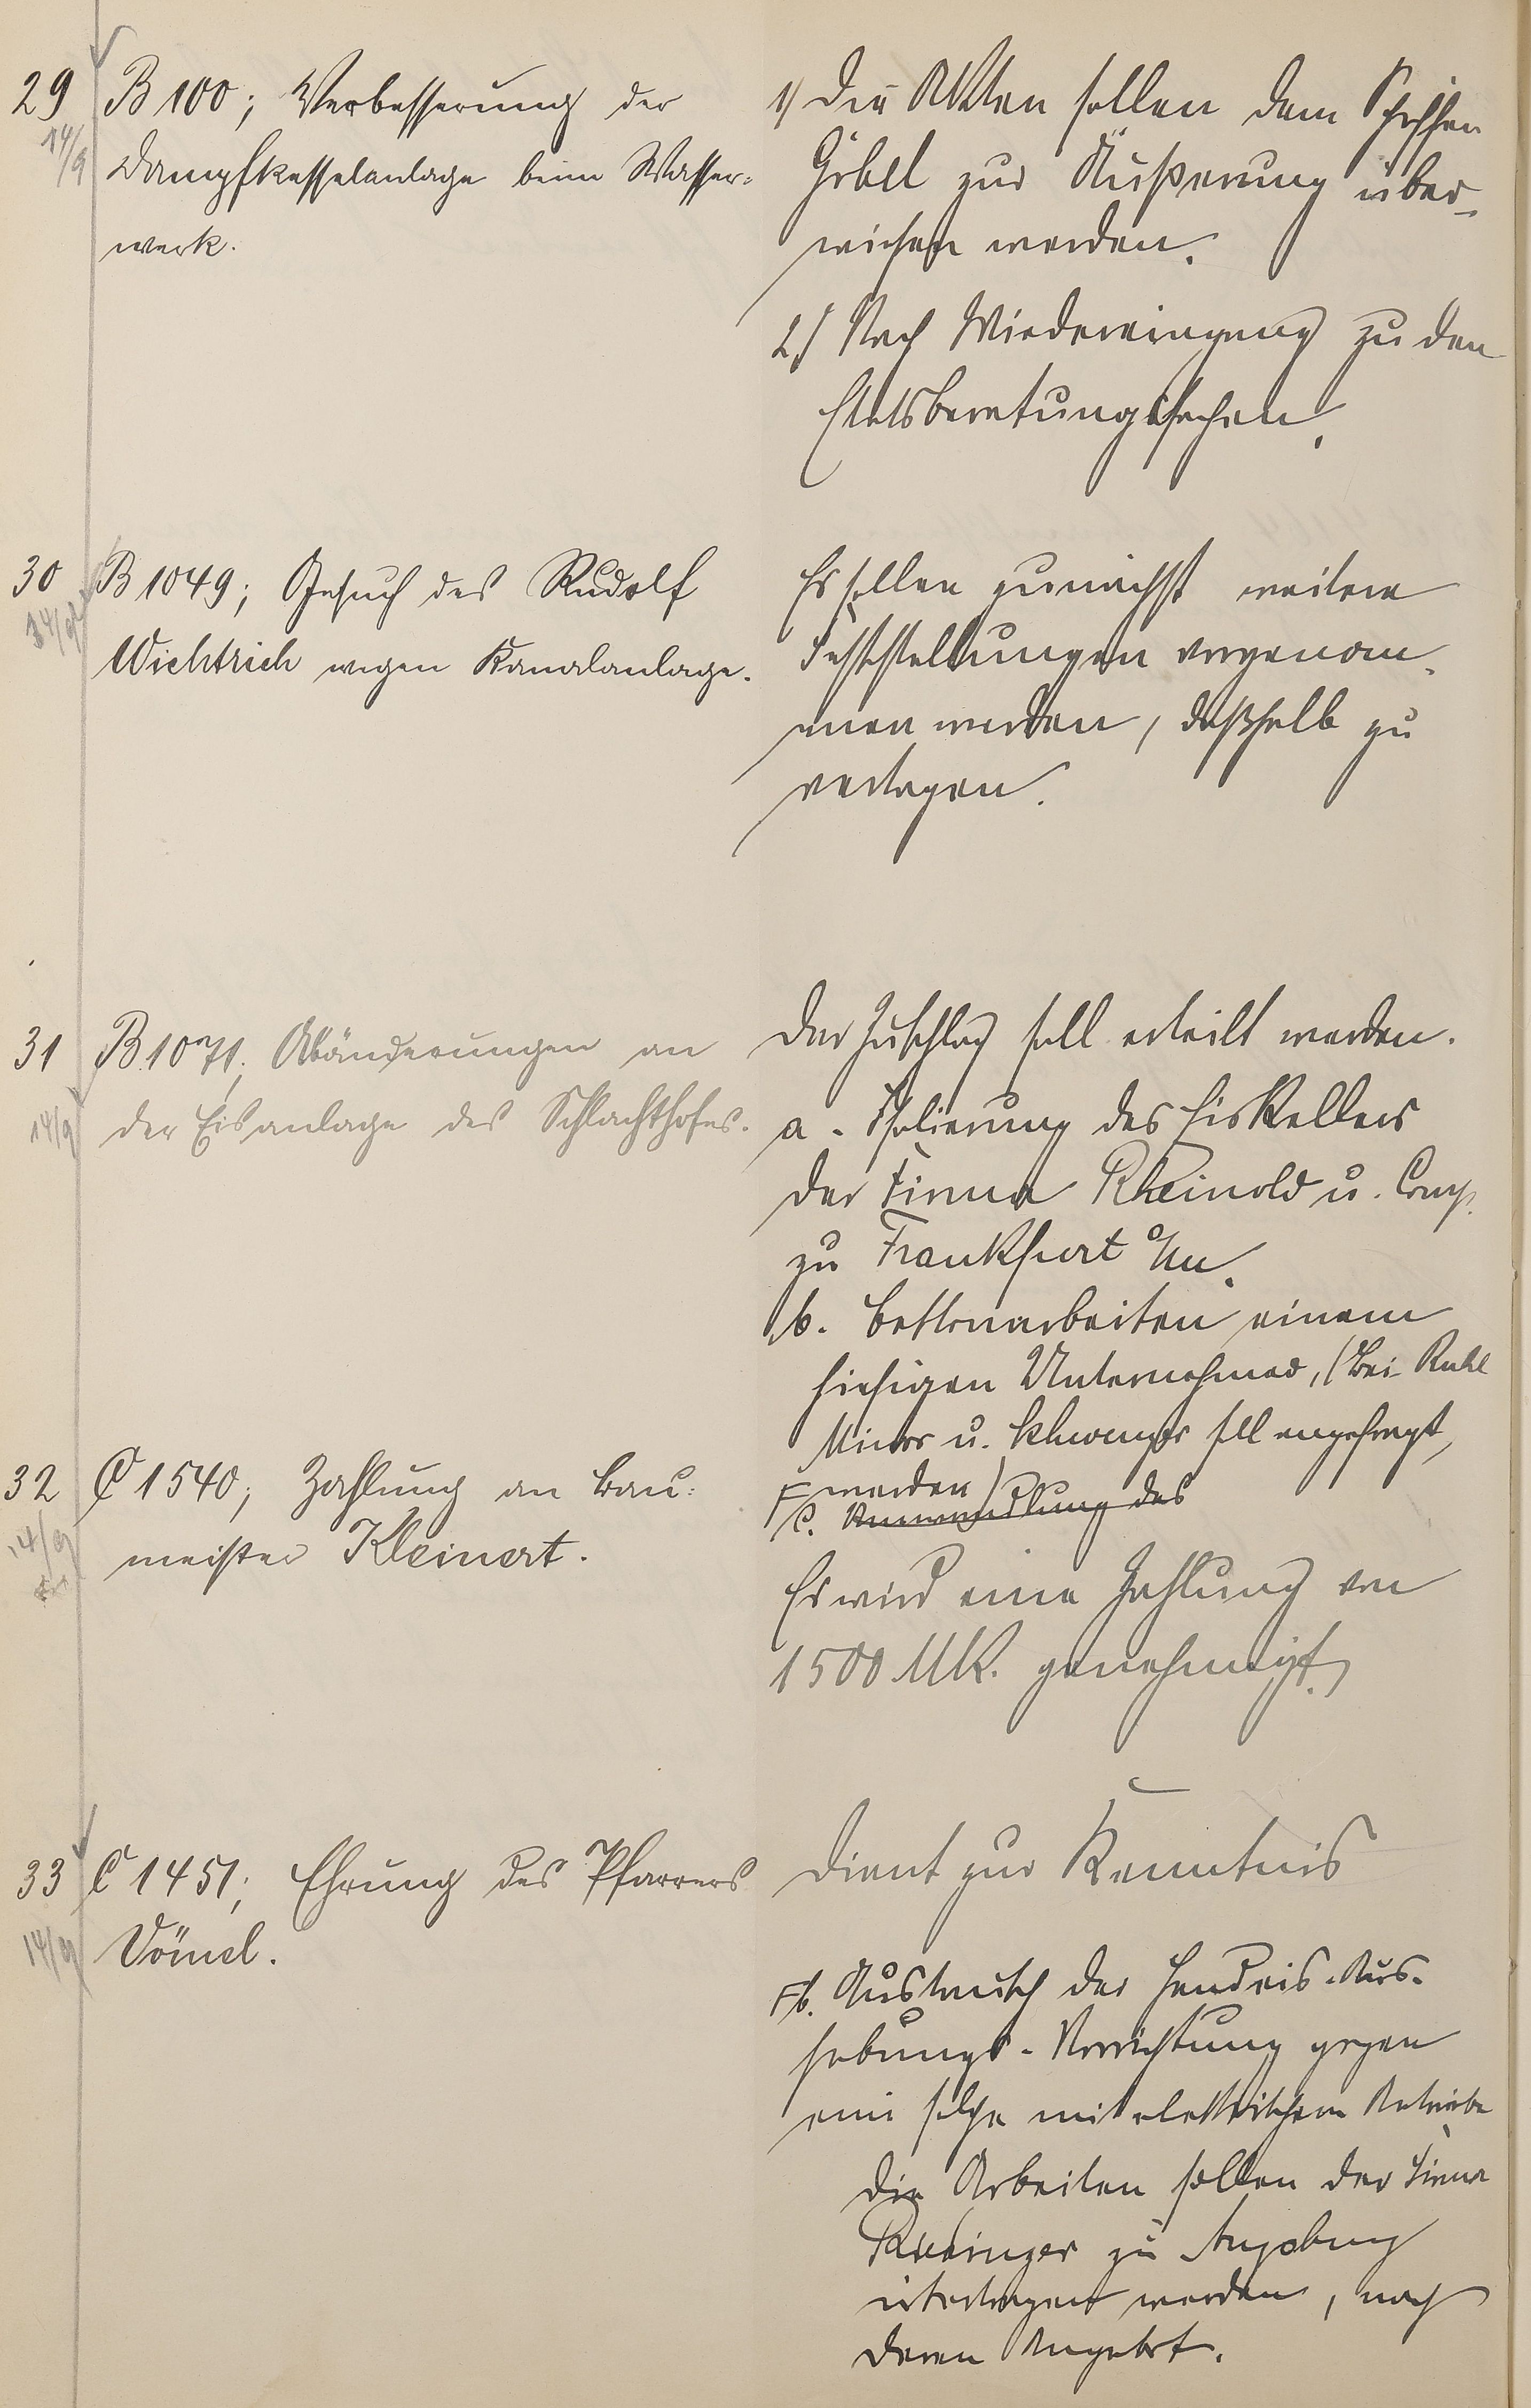 29
14/9
B 100; Verbesserung der
Dampfkesselanlage beim Wasser-
werk.
1) Die Akten sollen dem Schöffen
Göbel zur Äußerung über-
wiesen werden.
2.) Nach Wiedereingang zu den
Etatsberatungssachen.
30
14/9
B 1049; Gesuch des Rudolf
Wichtrich wegen Kanalanlage.
Es sollen zunächst weitere
Feststellungen vorgenom-
men werden, deßhalb zu
vertagen.
31
14/9
B 1071; Abänderungen an
der Eisanlage des Schlachthofes.
Der Zuschlag soll erteilt werden.
a. Isolierung des Eiskellers
der Firma Rheinold u. Comp.
zu Frankfurt a/m.
b. Bettonarbeiten einem
hiesigen Unternehmer, (bei Ruhl
u. soll angefragt
werden)
c. des
32
14/9
C 1540; Zahlung an Bau-
meister Kleinert.
Es wird eine Zahlung von
1500 Mk. genehmigt.
33
14/9
C 1451; Ehrung des Pfarrers
Vömel.
Dient zur Kenntnis
F b. Austausch der Handeis-Aus-
hebungs-Vorrichtung gegen
eine solche mit elektrischem Betriebe
Die Arbeiten sollen der Firma
Riedinger zu Augsburg
übertragen werden, nach
deren Angebot.